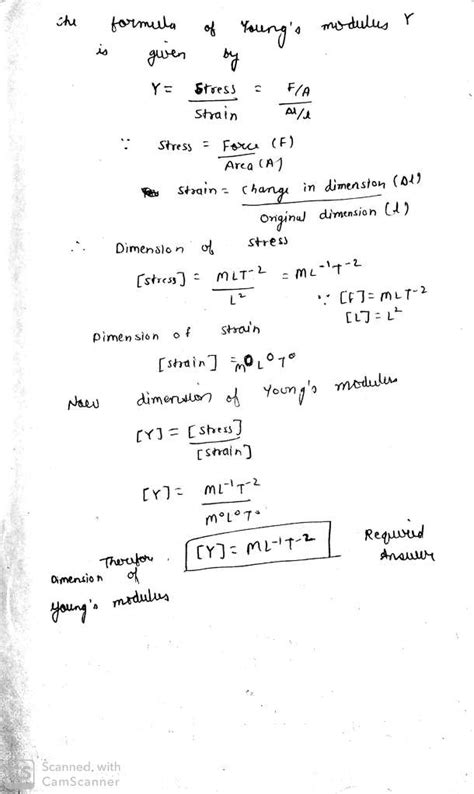 the formula of Young's modulus Y
is given by
Y = Stress / Strain = F/A / Δl/l
∵ Stress = Force (F) / Area (A)
Strain = Change in dimension (Δl) / Original dimension (l)
∴ Dimension of stress
[stress] = MLT-2 / L2 = ML-1T-2
∵ [F] = MLT-2
[L] = L2
Dimension of strain
[strain] = M0L0T0
Now dimension of Young's modulus
[Y] = [stress] / [strain]
[Y] = ML-1T-2 / M0L0T0
Therefor [Y] = ML-1T-2 Required
Dimension of Answer
Young's modulus
Scanned with
CamScanner